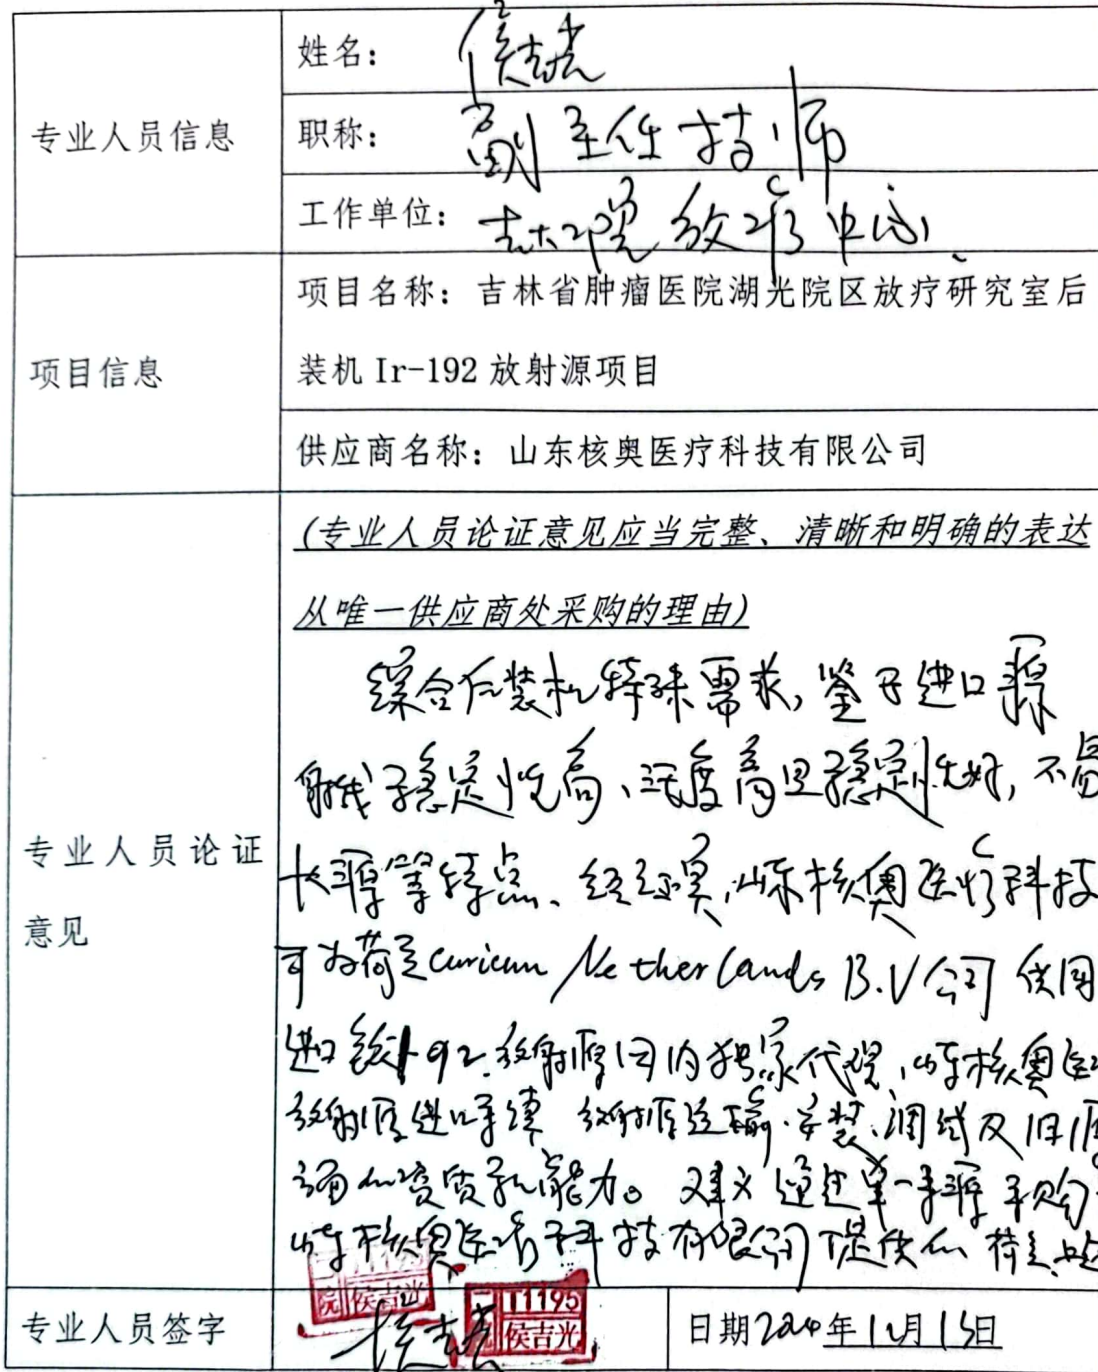 专业人员信息
姓名：侯吉光
职称：副主任技师
工作单位：吉大一院放疗中心
项目信息
项目名称：吉林省肿瘤医院湖光院区放疗研究室后
装机 Ir-192 放射源项目
供应商名称：山东核奥医疗科技有限公司
专业人员论证
意见
(专业人员论证意见应当完整、清晰和明确的表达
从唯一供应商处采购的理由)
综合后装机特殊需求，鉴于进口源
射线稳定性高、活度高且稳定性好，不易
卡源等特点、山东核奥医疗科技
为荷兰Curium Netherlands B.V公司
进口铱192放射源国内独家代理，山东核奥医
放射源进口手续 放射源运输、安装、调试及旧源
资质和能力。建议通过单一来源采购
山东核奥医疗科技有限公司提供的荷兰
专业人员签字
侯吉光
院 侯吉光
11195
侯吉光
日期 年 月 日